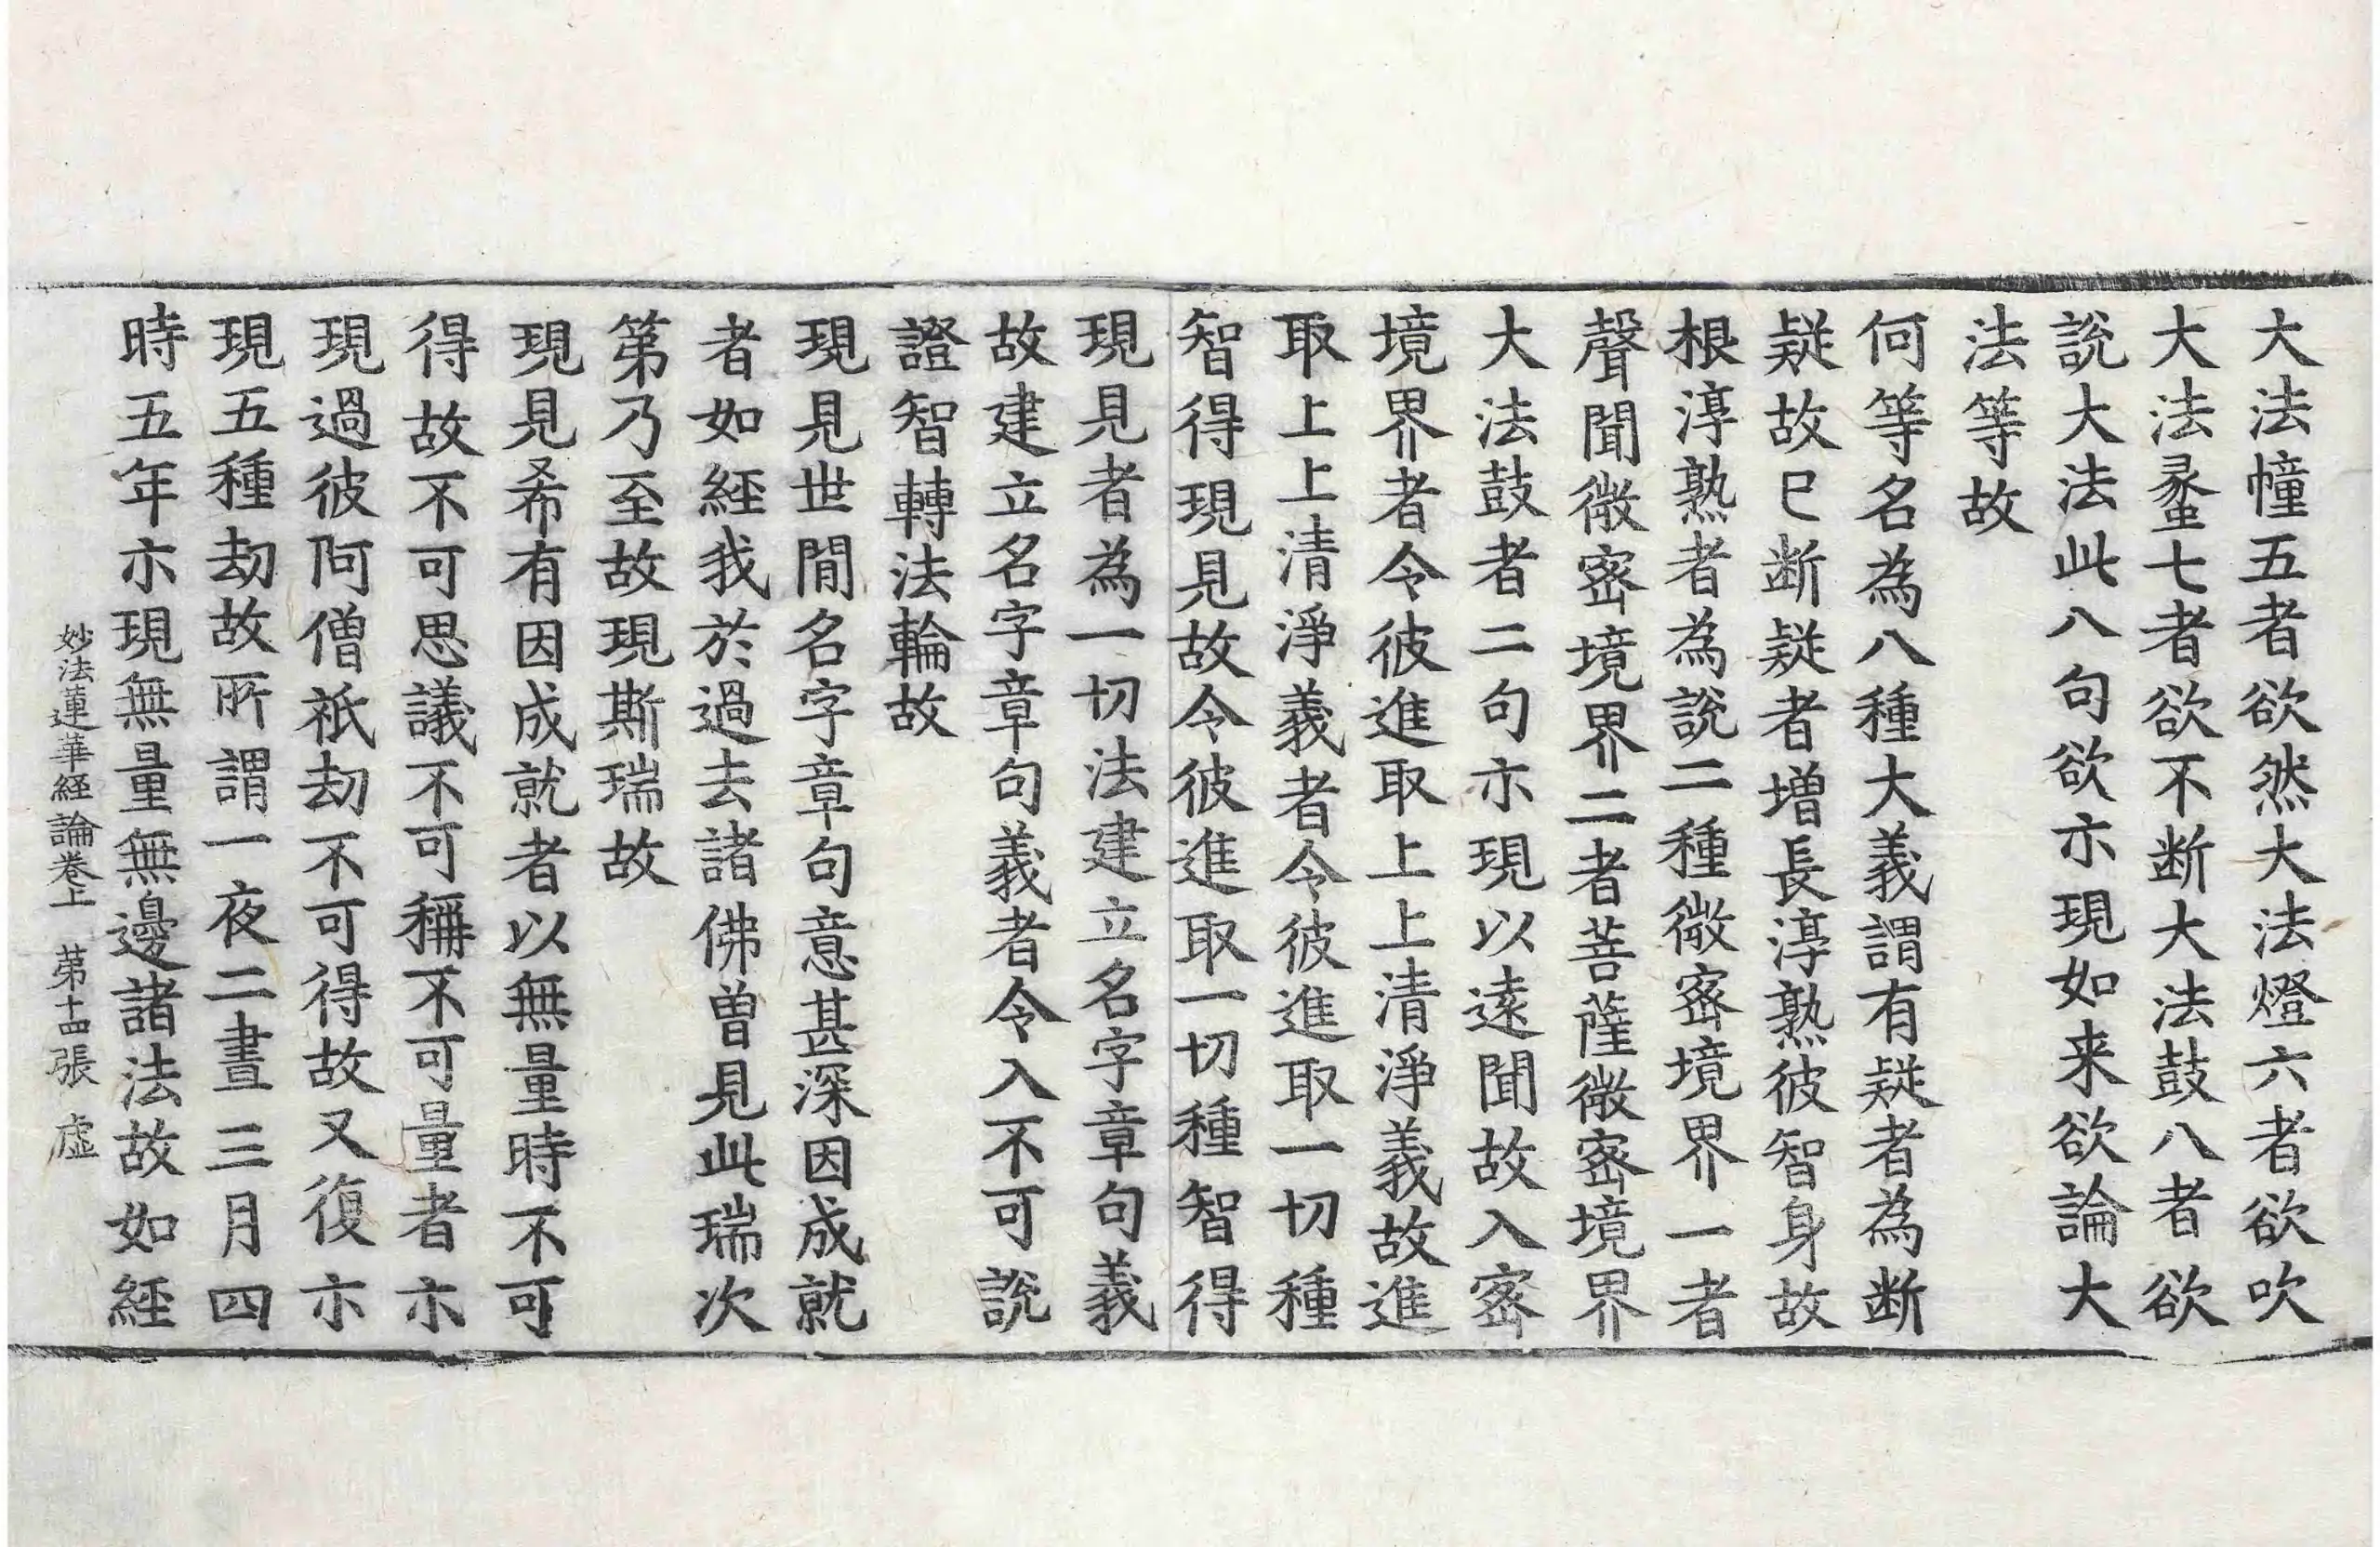 大法幢五者欲然大法燈六者欲吹
大法䗍七者欲不断大法鼓八者欲
說大法此八句欲亦現如来欲論大
法等故
何等名為八種大義謂有疑者為断
疑故已断疑者增長淳熟彼智身故
根淳熟者為說二種微密境界一者
聲聞微密境界二者菩薩微密境界
大法鼓者二句亦現以遠聞故入密
境界者令彼進取上上清淨義故進
取上上清淨義者令彼進取一切種
智得現見故令彼進取一切種智得
現見者為一切法建立名字章句義
故建立名字章句義者令入不可說
證智轉法輪故
現見世間名字章句意甚深因成就
者如經我於過去諸佛曽見此瑞次
第乃至故現斯瑞故
現見希有因成就者以無量時不可
得故不可思議不可稱不可量者亦
現過彼阿僧祇劫不可得故又復亦
現五種劫故所謂一夜二晝三月四
時五年亦現無量無邊諸法故如經
妙法蓮華經論卷上 第十四張 虛